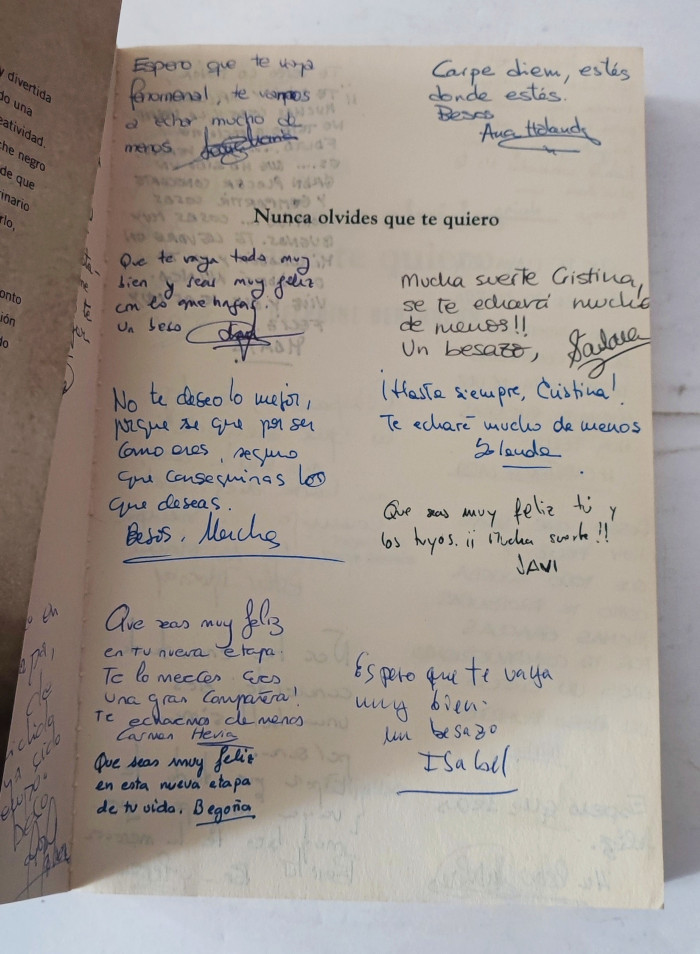 y divertida
do una
eatividad.
che negro
de que
rinario
rlo,
onto
ión
do
Espero que te vaya
fenomenal, te vamos
a echar mucho de
menos.
Carpe diem, estés
donde estés.
Besos
Ana
Nunca olvides que te quiero
Que te vaya todo muy
bien y seas muy feliz
con lo que hagas.
Un beso
Mucha suerte Cristina,
se te echará mucho
de menos!!
Un besazo,
No te deseo lo mejor,
porque se que por ser
como eres, seguro
que conseguiras los
que deseas.
Besos, Marcha
¡Hasta siempre, Cristina!
Te echaré mucho de menos
Yolanda
Que seas muy feliz tú y
los tuyos. ¡¡ Mucha suerte!!
JAVI
Que seas muy feliz
en tu nueva etapa.
Te lo mereces Eres
una gran compañera!
Te echaremos de menos
Carmen Hevia
Que seas muy feliz
en esta nueva etapa
de tu vida. Begoña
Espero que te vaya
muy bien.
un besazo
Isabel